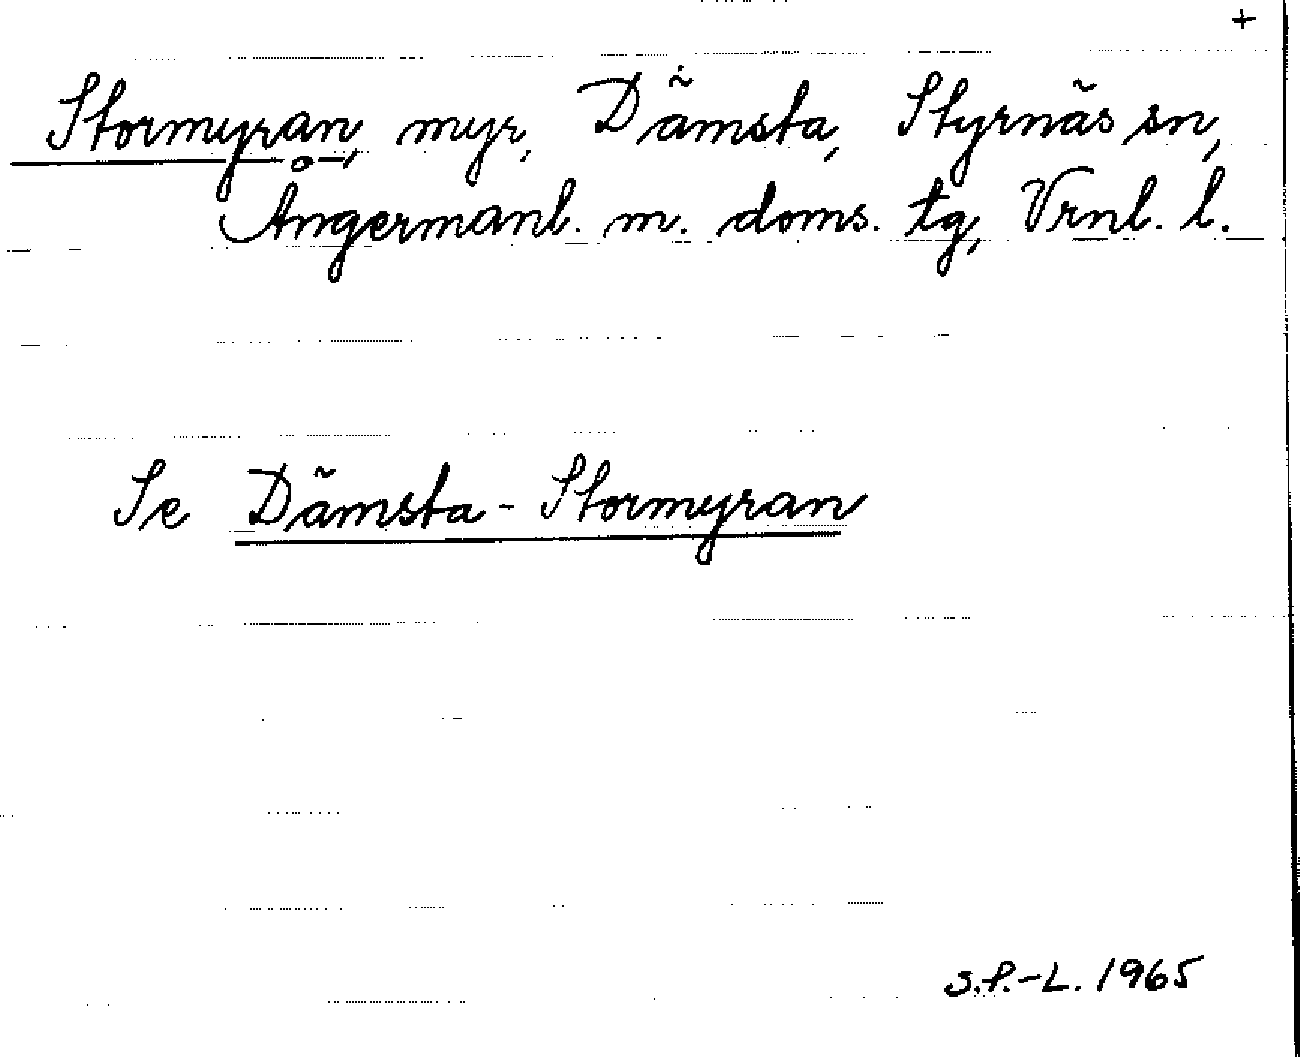 +
Stormyran, myr, Dämsta, Styrnäs sn,
Ångermanl. m. doms. tg, Vrnl. l.
Se Dämsta-Stormyran
S.P.-L. 1965